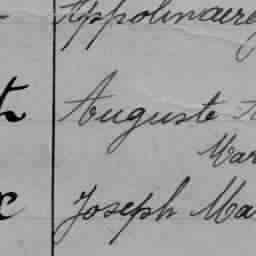 Appolinaire
Auguste
Mar
Joseph Ma